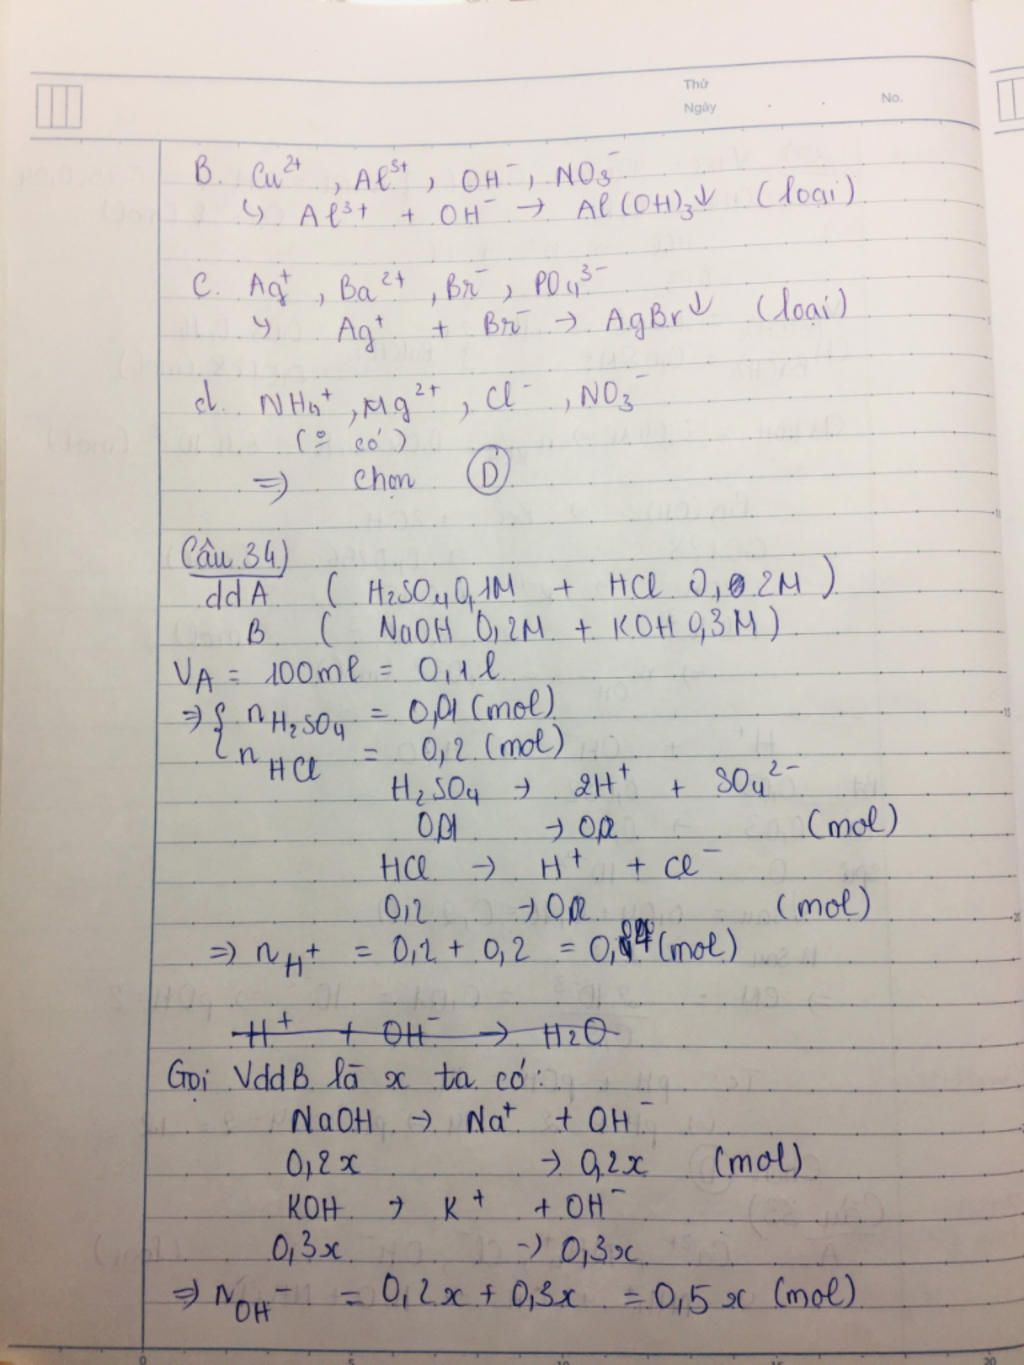 Thứ
Ngày . . No.
B. Cu²⁺, Al³⁺, OH⁻, NO₃⁻
↳ Al³⁺ + OH⁻ → Al(OH)₃↓ (loại)
C. Ag⁺, Ba²⁺, Br⁻, PO₄³⁻
↳ Ag⁺ + Br⁻ → AgBr↓ (loại)
d. NH₄⁺, Mg²⁺, Cl⁻, NO₃⁻
có)
⇒ Chọn Ⓓ
Câu 34)
ddA ( H₂SO₄ 0,1M + HCl 0,2M )
B ( NaOH 0,2M + KOH 0,3M )
V_A = 100ml = 0,1l
⇒ { n_H₂SO₄ = 0,01 (mol)
{ n_HCl = 0,2 (mol)
H₂SO₄ → 2H⁺ + SO₄²⁻
0,01 → 0,2 (mol)
HCl → H⁺ + Cl⁻
0,2 → 0,2 (mol)
⇒ n_H⁺ = 0,2 + 0,2 = 0,4 (mol)
H⁺ + OH⁻ → H₂O
Gọi VddB là x ta có:
NaOH → Na⁺ + OH⁻
0,2x → 0,2x (mol)
KOH → K⁺ + OH⁻
0,3x → 0,3x
⇒ n_OH⁻ = 0,2x + 0,3x = 0,5x (mol)